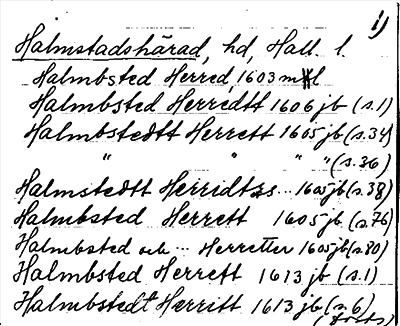 1)
Halmstadshärad, hd, Hall. l.
Halmbsted Herred, 1603 mtl
Halmbsted Herredtt 1606 jb (s.1)
Halmbstedtt Herrett 1605 jb (s.34)
" " " " (s.36)
Halmstedtt Herridtzs... 1605 jb (s.38)
Halmbsted Herrett 1605 jb (s.76)
Halmbsted och ... Herretter 1605 jb (s.80)
Halmbsted Herrett 1613 jb (s.1)
Halmbstedt Herritt 1613 jb (s.6)